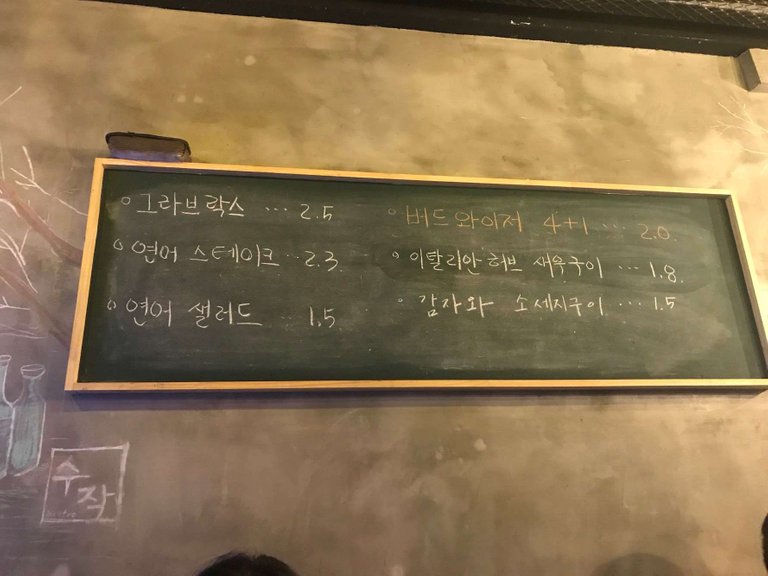 ◦ 그라브락스 ... 2.5
◦ 연어 스테이크 .. 2.3
◦ 연어 샐러드 .. 1.5
◦ 버드와이저 4+1 ... 2.0.
◦ 이탈리안허브 새우구이 ... 1.8.
◦ 감자와 소세지구이 ... 1.5
수작